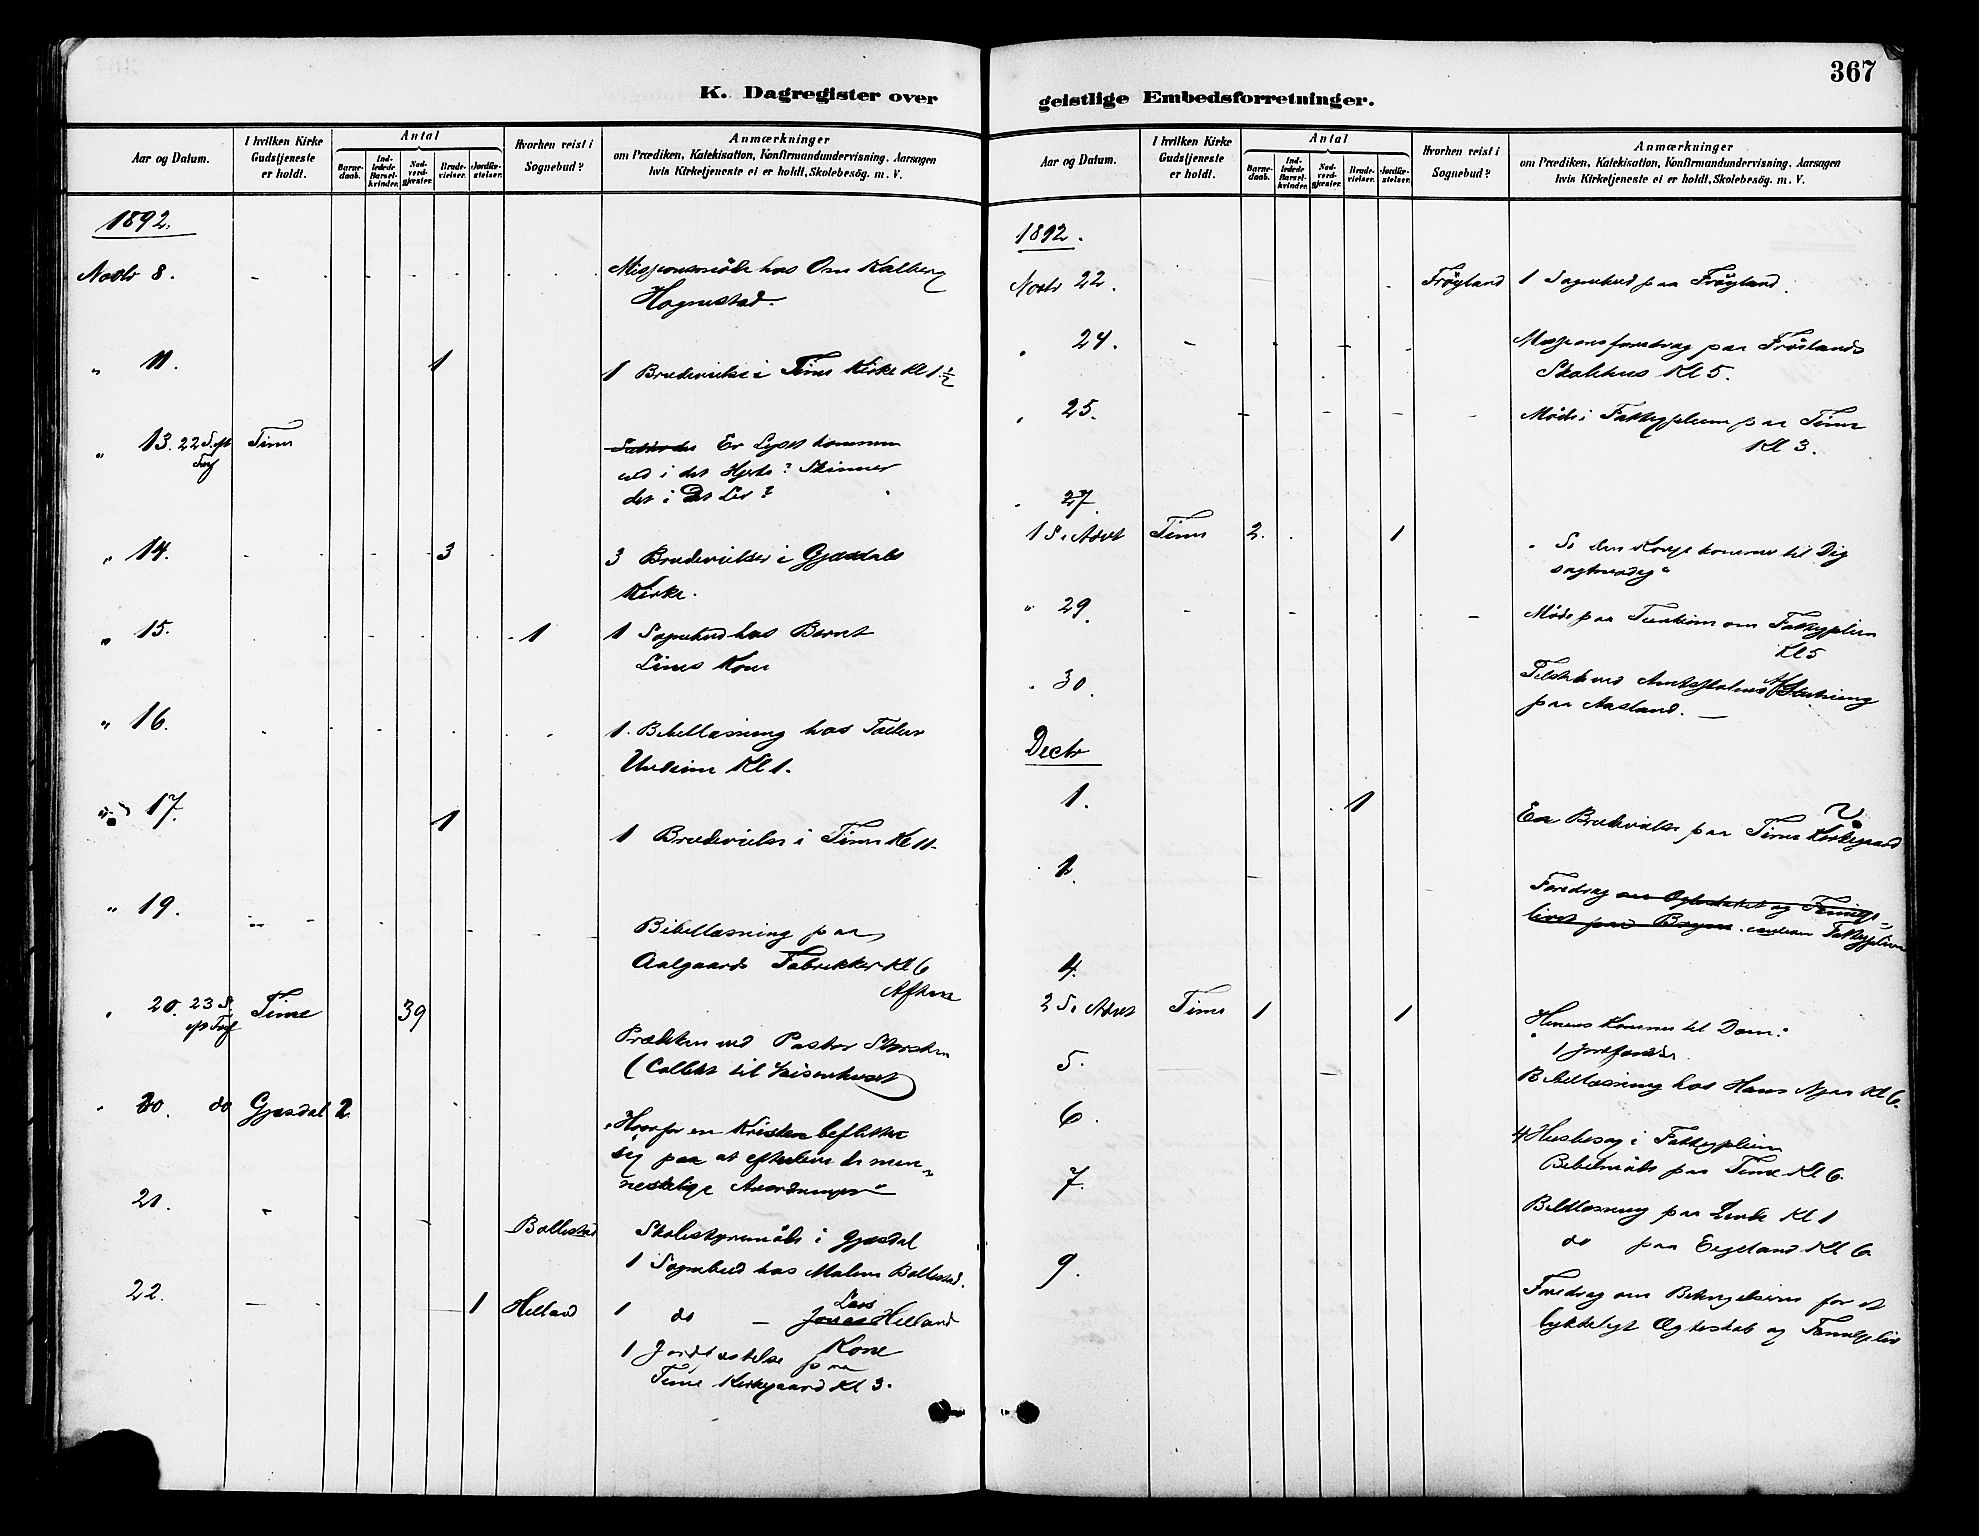 K. Dagregister over
Aar og Datum.
I hvilken Kirke Gudstjeneste er holdt.
Antal
Barne-daab.
Ind-ledede Barsel-kvinder.
Nad-verd-gjæster.
Brude-vielser.
Jordfæ-stelser.
Hvorhen reist i Sognebud?
Anmærkninger
om Prædiken, Katekisation, Konfirmandundervisning, Aarsagen
hvis Kirketjeneste ei er holdt, Skolebesög. m. V.
1892.
Novbr 8.
Missionsmöde hos Om Kalberg
Hognestad.
" 11. 1 1 Brudevielse i Time Kirke Kl 1 1/2
" 13. 22 S. eft Trf Time
Er Lyset kommen
ind i det Hjerte? Skinner
det i Dit Liv?
" 14. 3 3 Brudevielser i Gjæsdals
Kirke.
" 15. 1 1 Sognebud hos Bernt
Lines Kone
" 16. 1. Bibellæsning hos
Undheim Kl 1.
17. 1 1 Brudevielse i Time Kl 11.
" 19.
Bibellæsning paa
Aalgaards Fabrikker Kl 6
Aften
" 20. 23 S. eft Trf Time 39
Prædiken ved Pastor
(Collekt til Vaisenhuset)
" 20. do Gjæsdal 2
"Hvorfor en Kristen beflitter
sig paa at efterleve de men-
neskelige Anordninger"
21. Bollestad Skolestyremöde i Gjæsdal
1 Sognebud hos Malene Bollestad.
22. 1 Helland 1 do — Jonas Lars Helland
Kone
1 Jordfæstelse paa
Time Kirkegaard Kl 3.
geistlige Embedsforretninger.
367
Aar og Datum.
I hvilken Kirke Gudstjeneste er holdt.
Antal
Barne-daab.
Ind-ledede Barsel-kvinder.
Nad-verd-gjæster.
Brude-vielser.
Jordfæ-stelser.
Hvorhen reist i Sognebud?
Anmærkninger
om Prædiken, Katekisation, Konfirmandundervisning, Aarsagen
hvis Kirketjeneste ei er holdt, Skolebesög. m. V.
1892.
Novbr 22. Fröyland 1 Sognebud paa Fröyland.
" 24. Missionsforedrag paa Frölands
Skolehus Kl 5.
" 25. Möde i Fattigpleien paa Time
Kl 3.
" 27.
1 S. i Advt Time 2. 1
"Se din Konge kommer til Dig
sagtmodig"
" 29. Möde paa om Fattigpleien
Kl 5
" 30. Tilstede ved Amtsskolens Afslutning
paa Aasland.
Decbr
1. 1 En Brudevielse paa Time Kirkegaard
2.
Foredrag om Ægteskabet og Familie-
livet paa Bryne. Fattigpleien
4.
2 S. i Advt Time 1 1
Herren Kommer til Dom:
1 Jordfæstelse.
5. Bibellæsning hos Hans Njaa Kl 6.
6. 4 Husbesög i Fattigpleien
Bibelmöde paa Time Kl 6.
7. Bibellæsning paa Kl 1
do paa Eigeland Kl 6
9. Foredrag om Betingelserne for et
lykkeligt Ægteskab og Familieliv